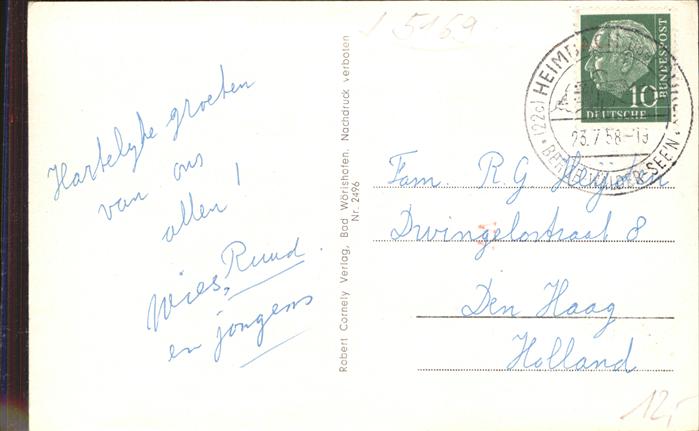 5169
Hartelyke groeten
van ons
allen!
Wies, Ruud.
en jongens
Robert Cornely Verlag, Bad Wörishofen. Nachdruck verboten
Nr. 2496
10
DEUTSCHE
BUNDESPOST
(22c) HEIMBACH
23.7.58-19
Fam. R. G.
Dwingelostraat 8
Den Haag
Holland
12,-